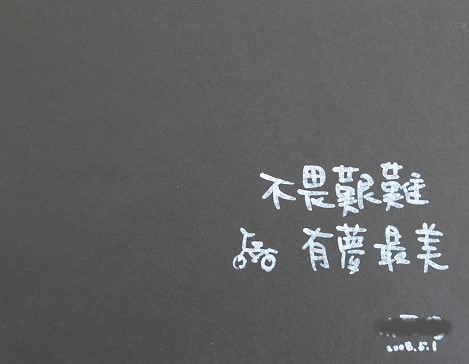 不畏艱難
有夢最美
2008.5.1